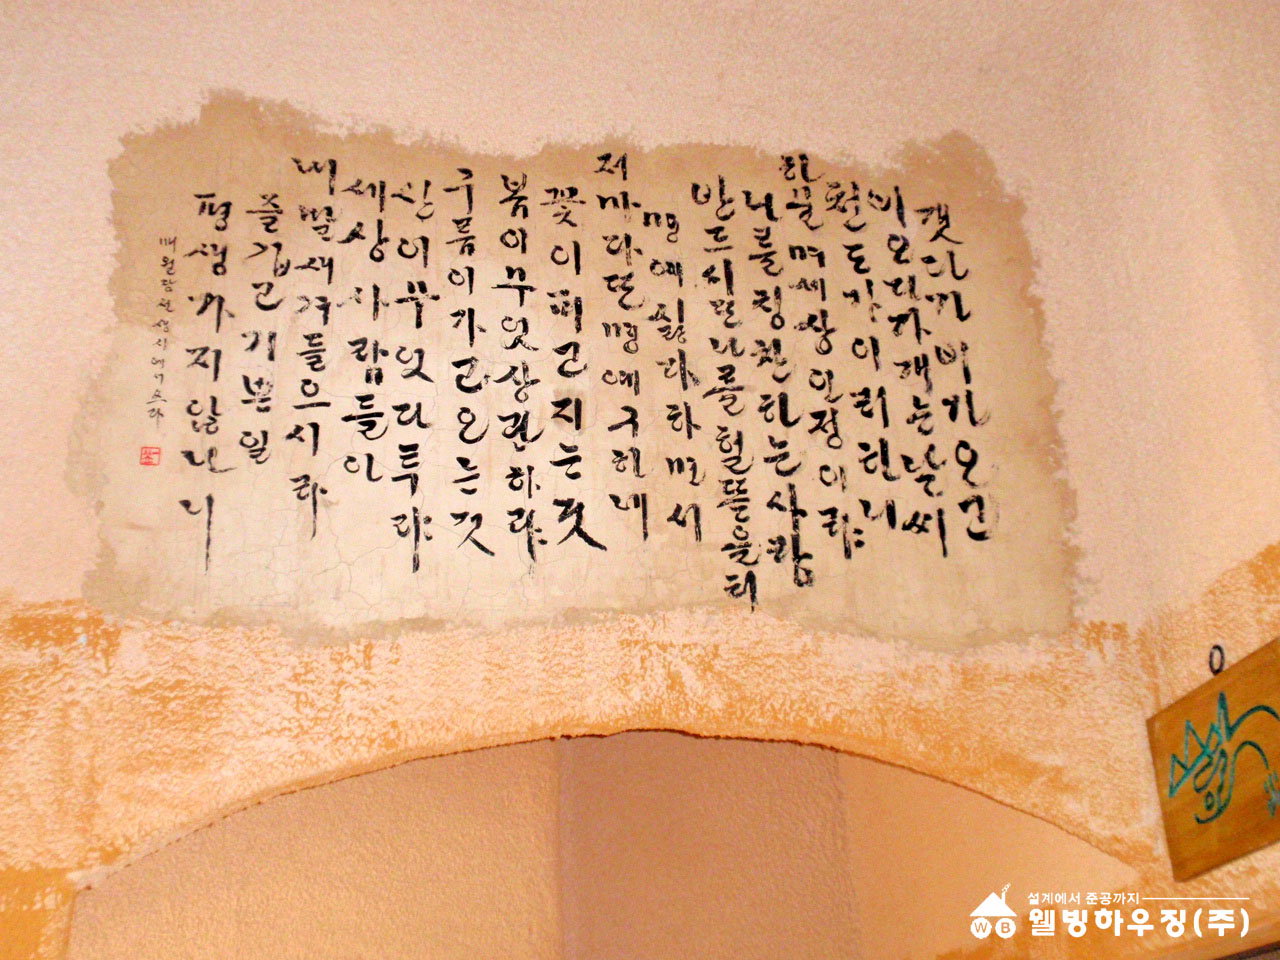 갯다가 비가 오고
비오다가 개는 날씨
천도가 이러하니
하물며 세상인정이랴
나를 칭찬하는 사람
반드시 또 나를 헐뜯을터
명예 싫다 하며서
저마다 또 명예 구하네
꽃이 피고 지는 것
봄이 무엇 상관하랴
구름이 가고 오는 것
산이 무엇 다투랴
세상 사람들아
내 말 새겨들으시라
즐겁고 기쁜 일
평생 가지 않나니
매월당 선생 시
설계에서 준공까지
WB 웰빙하우징(주)